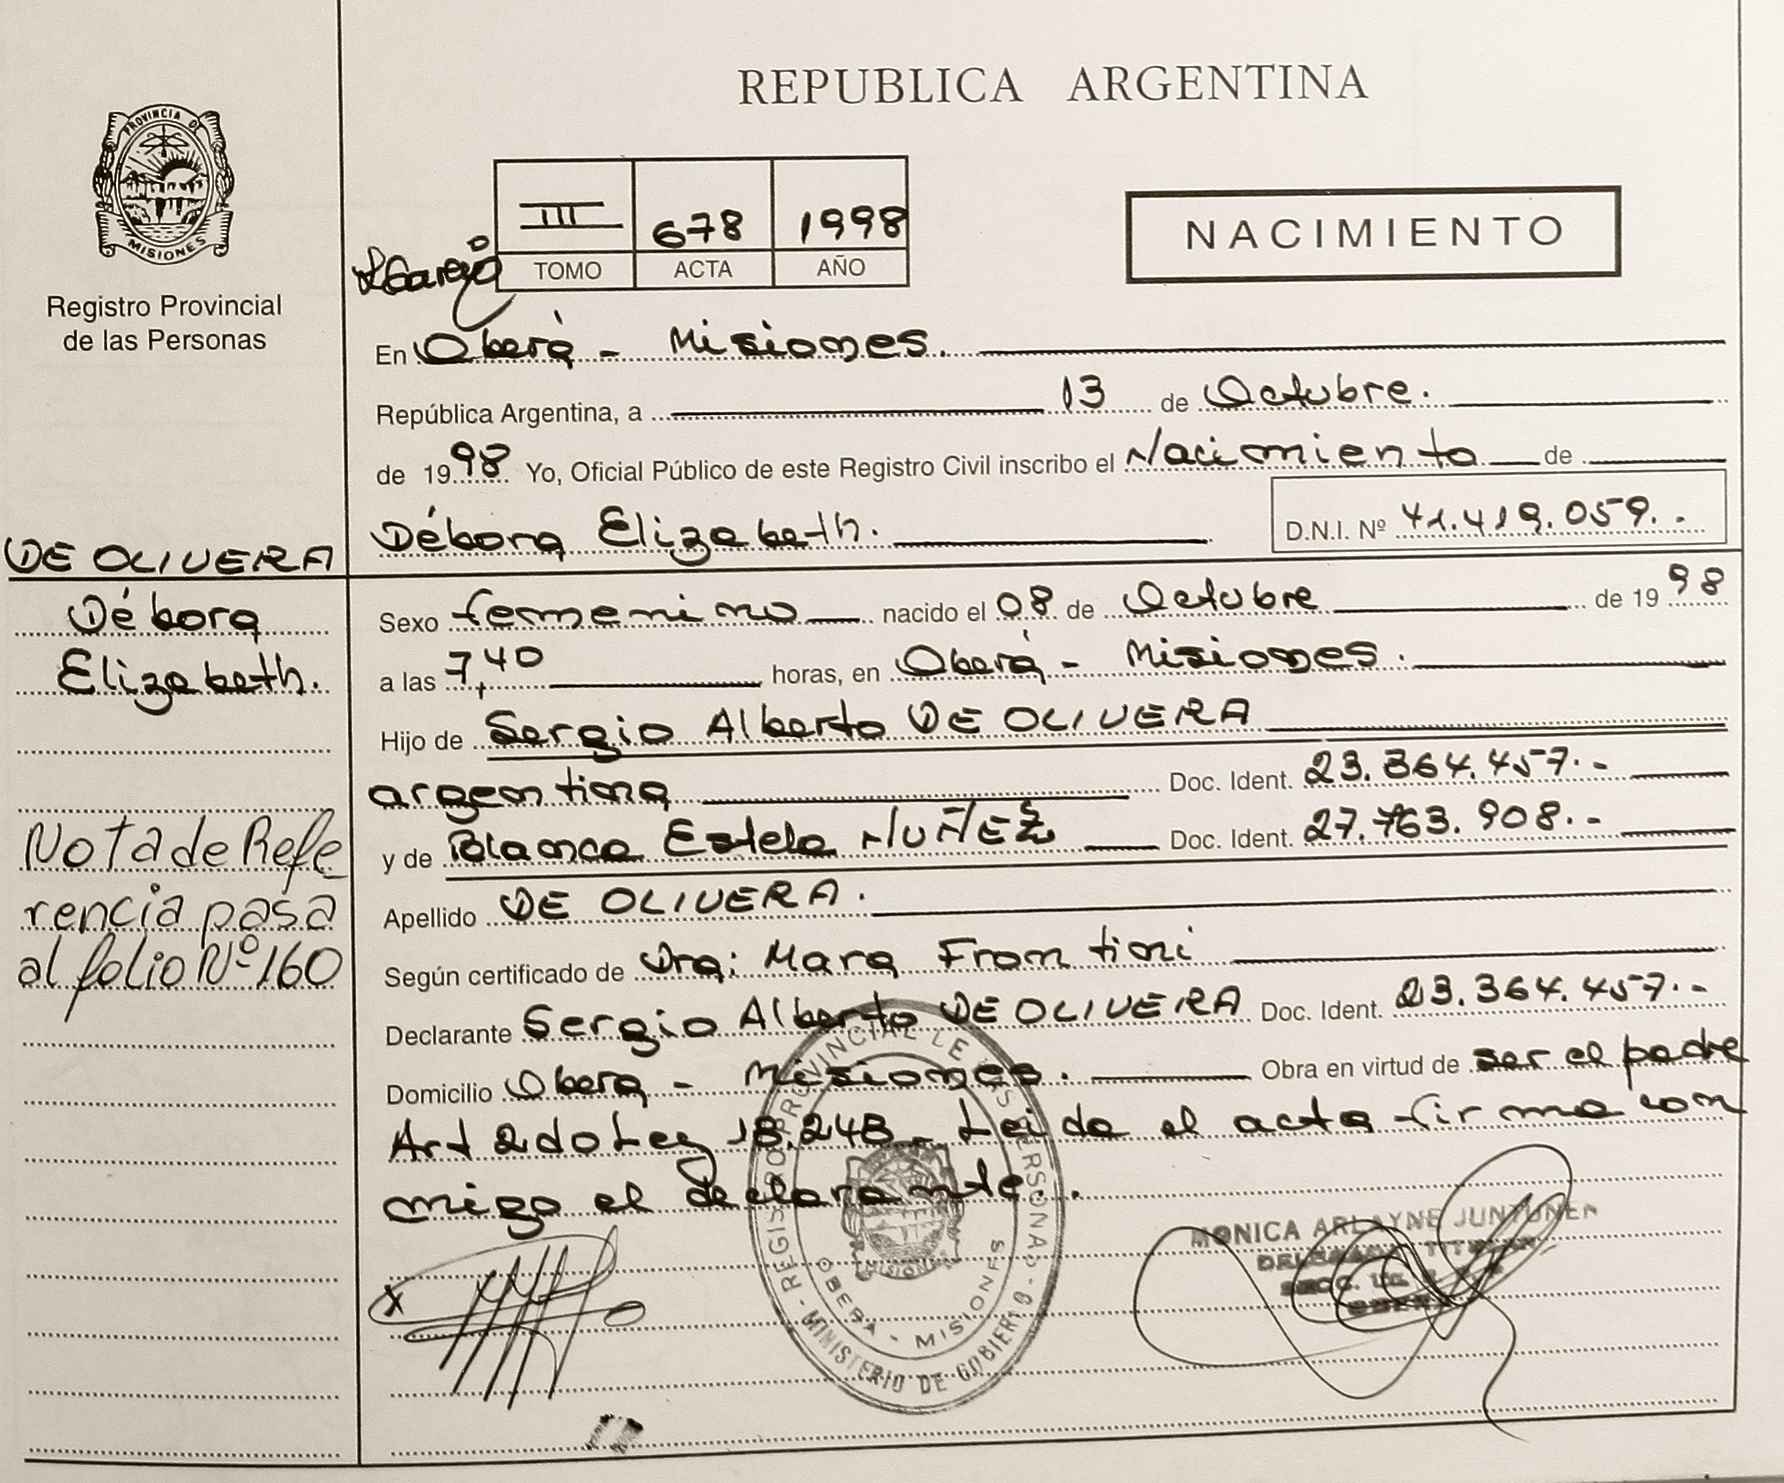 REPUBLICA ARGENTINA
PROVINCIA DE
MISIONES
Registro Provincial
de las Personas
III 678 1998
TOMO ACTA AÑO
NACIMIENTO
En Oberá - Misiones.
República Argentina, a 13 de Octubre.
de 1998 Yo, Oficial Público de este Registro Civil inscribo el Nacimiento de
Débora Elizabeth. D.N.I. Nº 41.419.059..
DE OLIVERA
Débora
Elizabeth.
Sexo femenino nacido el 08 de Octubre de 1998
a las 7,40 horas, en Oberá - Misiones.
Hijo de Sergio Alberto DE OLIVERA
argentina Doc. Ident. 23.364.457.-
y de Blanca Estela NUÑEZ Doc. Ident. 27.763.908.-
Apellido DE OLIVERA.
Según certificado de Dra: Mara Frontini
Declarante Sergio Alberto DE OLIVERA Doc. Ident. 23.364.457.-
Domicilio Obera - Misiones. Obra en virtud de ser el padre
Art 2do Ley 18.248. Leida el acta firma con
migo el declarante..
Nota de Refe
rencia pasa
al folio Nº 160
REGISTRO PROVINCIAL DE LAS PERSONAS
MISIONES
OBERA - MISIONES
MINISTERIO DE GOBIERNO
MONICA ARLAYNE JUNTUNEN
DELEGADA TITULAR
OBERA